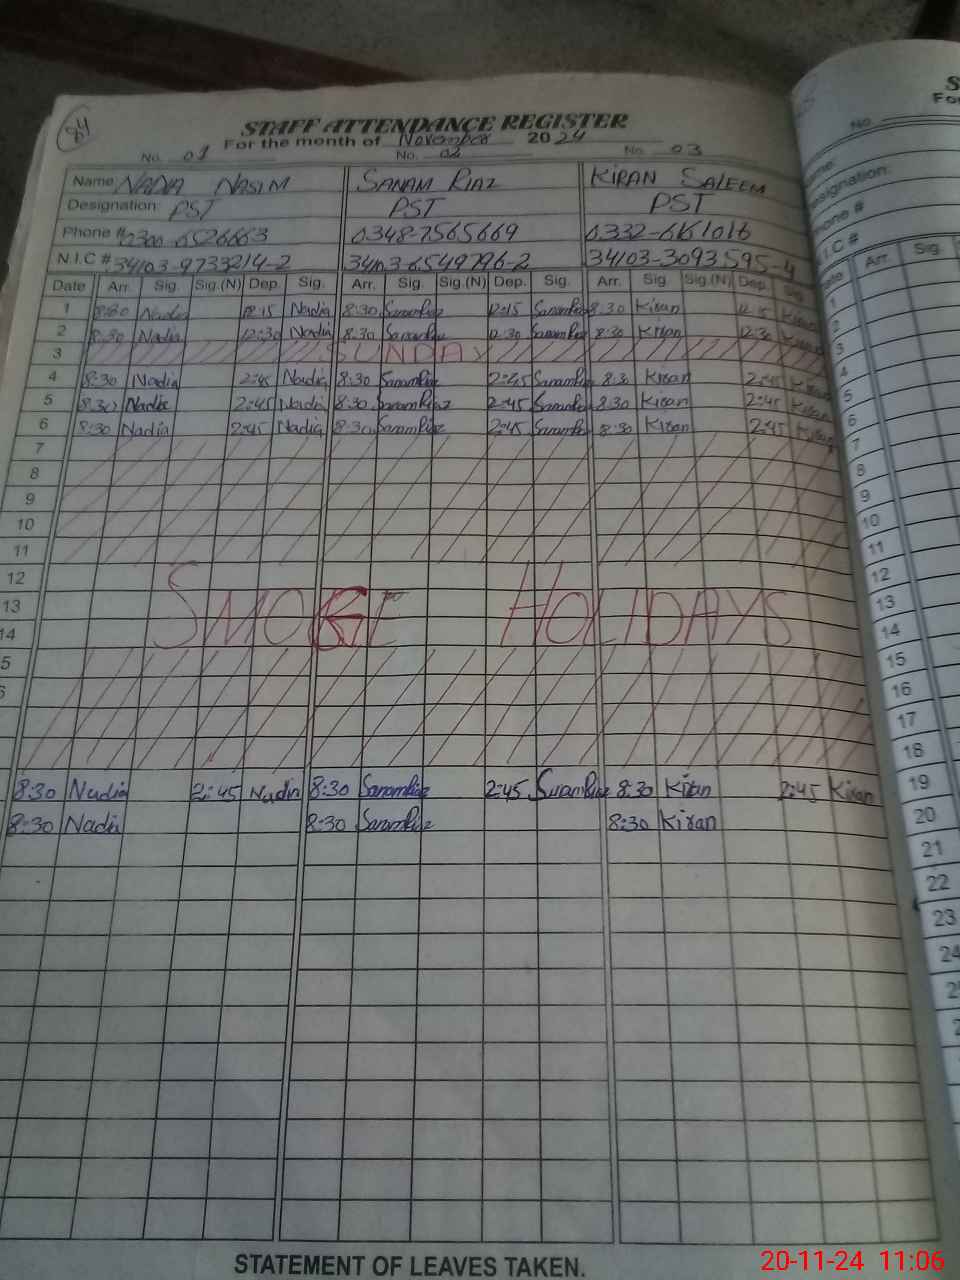 84
STAFF ATTENDANCE REGISTER
For the month of November 2024
No. 01 No. 02 No. 03
Name: NADIA NASIM SANAM RIAZ KIRAN SALEEM
Designation: PST PST PST
Phone # 0300-6526663 0348-7565669 0332-6161016
N.I.C # 34103-9733214-2 34103-6549796-2 34103-3093595-4
Date Arr. Sig. Sig.(N) Dep. Sig. Arr. Sig. Sig.(N) Dep. Sig. Arr. Sig. Sig.(N) Dep. Sig.
1 8:30 Nadia 12:15 Nadia 8:30 SanamRiaz 12:15 SanamRiaz 8:30 Kiran 12:15 Kiran
2 8:30 Nadia 12:30 Nadia 8:30 SanamRiaz 12:30 SanamRiaz 8:30 Kiran 12:30 Kiran
3 SUNDAY
4 8:30 Nadia 2:45 Nadia 8:30 SanamRiaz 2:45 SanamRiaz 8:30 Kiran 2:45 Kiran
5 8:30 Nadia 2:45 Nadia 8:30 SanamRiaz 2:45 SanamRiaz 8:30 Kiran 2:45 Kiran
6 8:30 Nadia 2:45 Nadia 8:30 SanamRiaz 2:45 SanamRiaz 8:30 Kiran 2:45 Kiran
7
8
9
10
11
12
13 SMOGE HOLIDAYS
14
5
6
8:30 Nadia 2:45 Nadia 8:30 SanamRiaz 2:45 SanamRiaz 8:30 Kiran 2:45 Kiran
8:30 Nadia 8:30 SanamRiaz 8:30 Kiran
STATEMENT OF LEAVES TAKEN.
No.
Name:
Designation:
Phone #
N.I.C #
Date Arr. Sig.
1
2
3
4
5
6
7
8
9
10
11
12
13
14
15
16
17
18
19
20
21
22
23
24
20-11-24 11:06